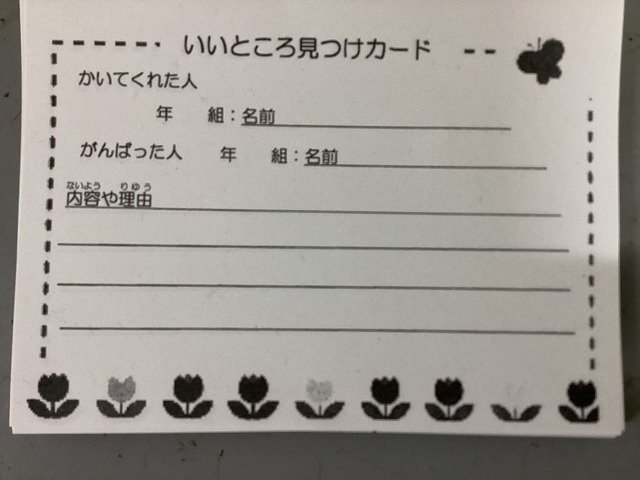 いいところ見つけカード
かいてくれた人
年 組：名前
がんばった人 年 組：名前
ないよう りゆう
内容や理由